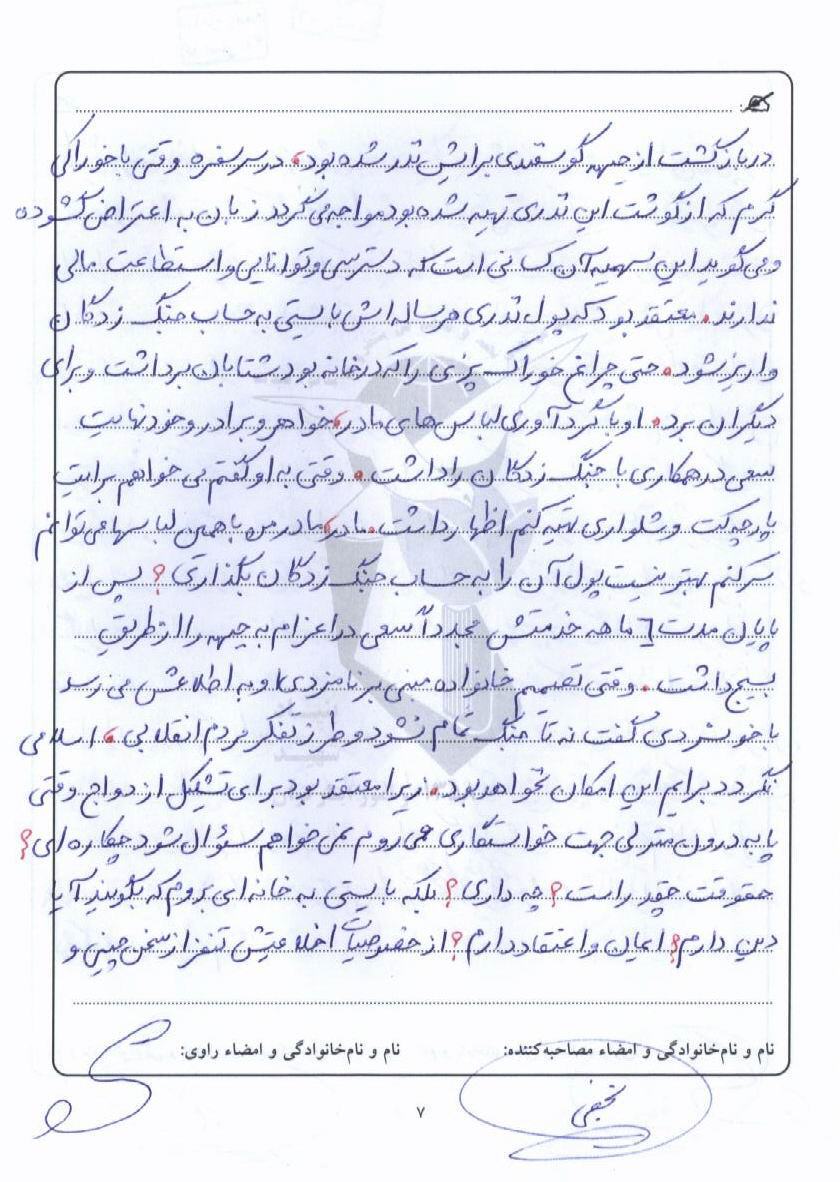 در بازگشت از جبهه گوسفندی برایش نذر شده بود، در سر سفره وقتی با خوراکی
گرم که از گوشت این نذری تهیه شده بود مواجه می گردد زبان به اعتراض گشوده
و می گوید این سهمیه آن کسانی است که دسترسی و توانایی و استطاعت مالی
ندارند. معتقد بود که پول نذری هر ساله اش بایستی به حساب جنگ زدگان
واریز شود. حتی چراغ خوراک پزی را که در خانه بود شتابان برداشت و برای
دیگران برد. او با گردآوری لباس های مادر، خواهر و برادر و خود نهایت
سعی در همکاری با جنگ زدگان را داشت. وقتی به او گفتم می خواهم برایت
پارچه کت و شلواری تهیه کنم اظهار داشت. مادر، مادر من با همین لباسها می توانم
سر کنم بهتر نیست پول آن را به حساب جنگ زدگان بگذاری؟ پس از
پایان مدت ٦ ماهه خدمتش مجدداً سعی در اعزام به جبهه را از طریق
بسیج داشت. وقتی تصمیم خانواده مبنی بر نامزدی او به اطلاعش می رسد
با خونسردی گفت نه تا جنگ تمام نشود و طرز تفکر مردم انقلابی، اسلامی
نگردد برایم این امکان نخواهد بود. زیرا معتقد بود برای تشکیل ازدواج وقتی
پا به درون منزلی جهت خواستگاری می روم نمی خواهم سئوال شود چکاره ای؟
حقوقت چقدر است؟ چه داری؟ بلکه بایستی به خانه ای بروم که بگویند آیا
دین دارم؟ ایمان و اعتقاد دارم؟ از خصوصیات اخلاقیش تنفر از سخن چینی و
نام و نام‌خانوادگی و امضاء مصاحبه‌کننده: نام و نام‌خانوادگی و امضاء راوی:
نجفی
۷